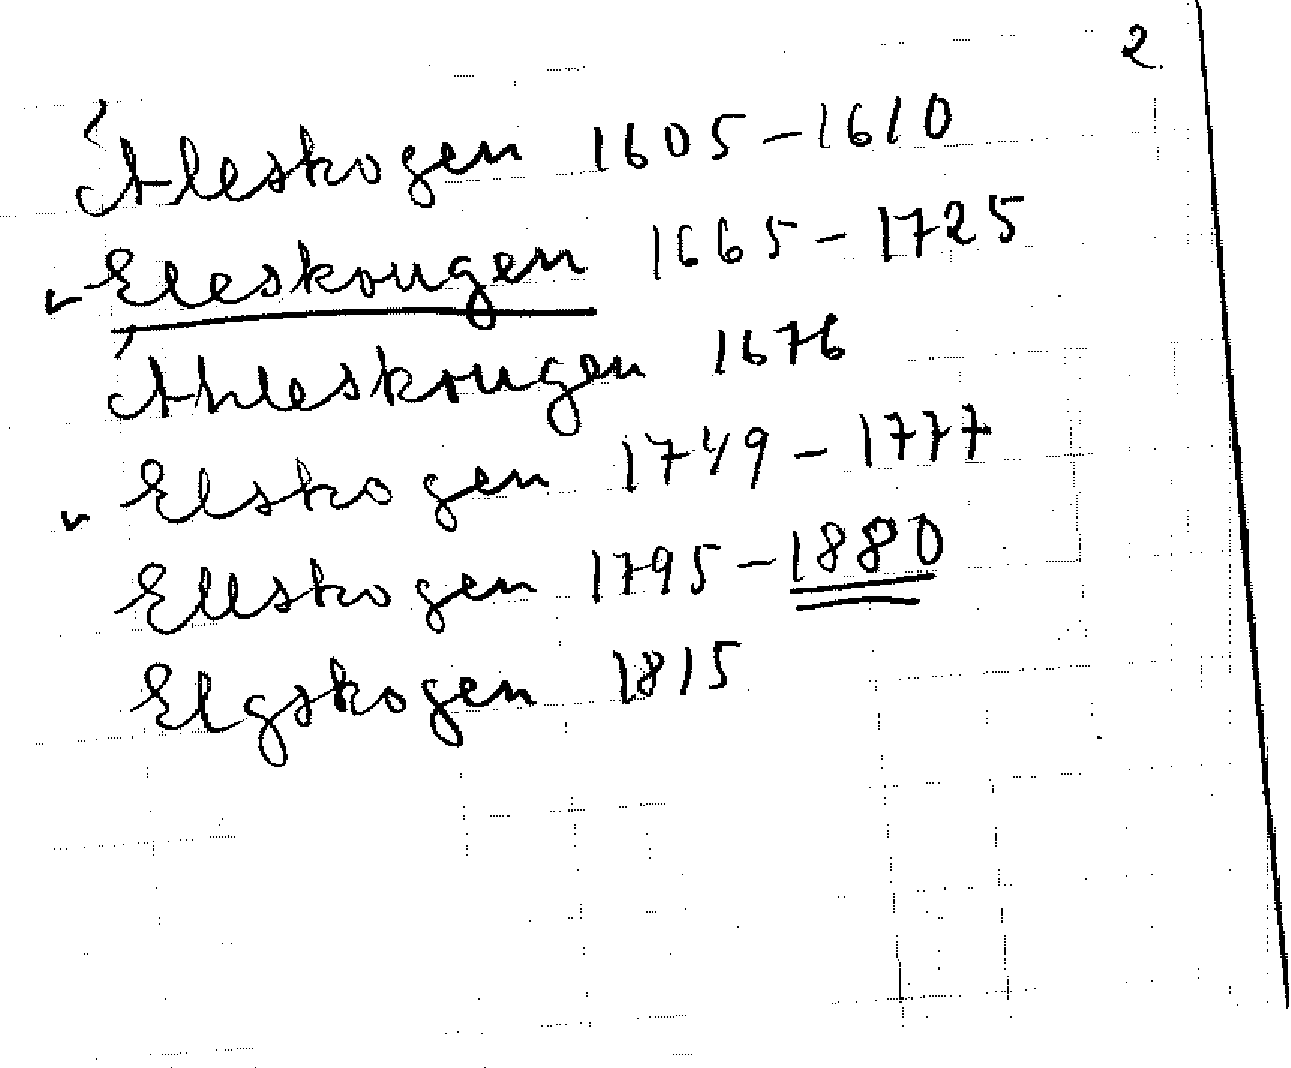 2
Aleskogen 1605-1610
Eleskougen 1665-1725
Ahleskougen 1676
Elskogen 1749-1777
Ellskogen 1795-1880
Elgskogen 1815